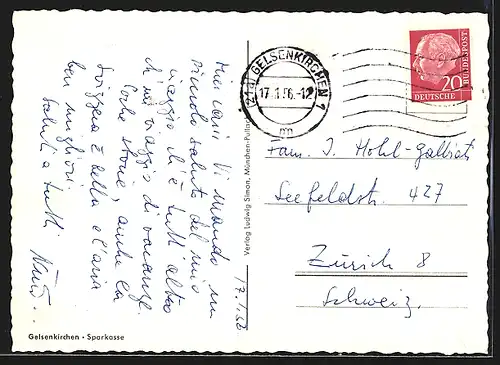 17.1.56
Miei cari! Vi mando un
piccolo saluto del mio
viaggio ch'è tutt'altro
ch'un viaggio di vacanze.
anche la
è bella e l'aria
ben
Saluti a tutti
Gelsenkirchen · Sparkasse
Verlag Ludwig Simon, München-Pullach
GELSENKIRCHEN 1
17.1.56.-12
20
DEUTSCHE
BUNDESPOST
Fam. J. Hohl-Galbiati
Seefeldstr. 427
Zürich 8
Schweiz.